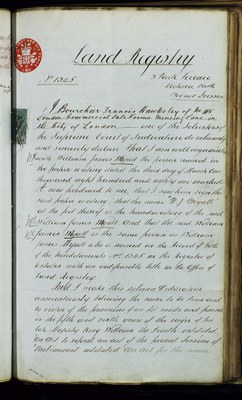 Land Registry
3 Park Terrace
Victoria Park
No 1305
I Bourchier Francis Hawksley of No
London Commercial Sale Rooms Mincing Lane in
the City of London one of the Solicitors of
the Supreme Court of Judicature do solemnly
and sincerely declare That I am well acquainted
with William James Myatt the person named in
the paper writing dated the third day of March One
thousand eight hundred and
produced to me that I saw him sign the
said paper writing that the name W J Myatt
at the foot thereof is the handwriting of the said
William James Myatt And that the said William
James Myatt is the same person as William
James Myatt who is named on the Record of Title
of the hereditaments No 1305 in the Register of
Estates with an indefeasible title in the Office of
Land Registry
And I make this solemn declaration
conscientiously believing the same to be true and
by virtue of the provisions of an Act made and passed
in the fifth and sixth years of the reign of his
late Majesty King William the Fourth intituled
An Act to repeal an act of the present Session of
Parliament intituled An Act for the more